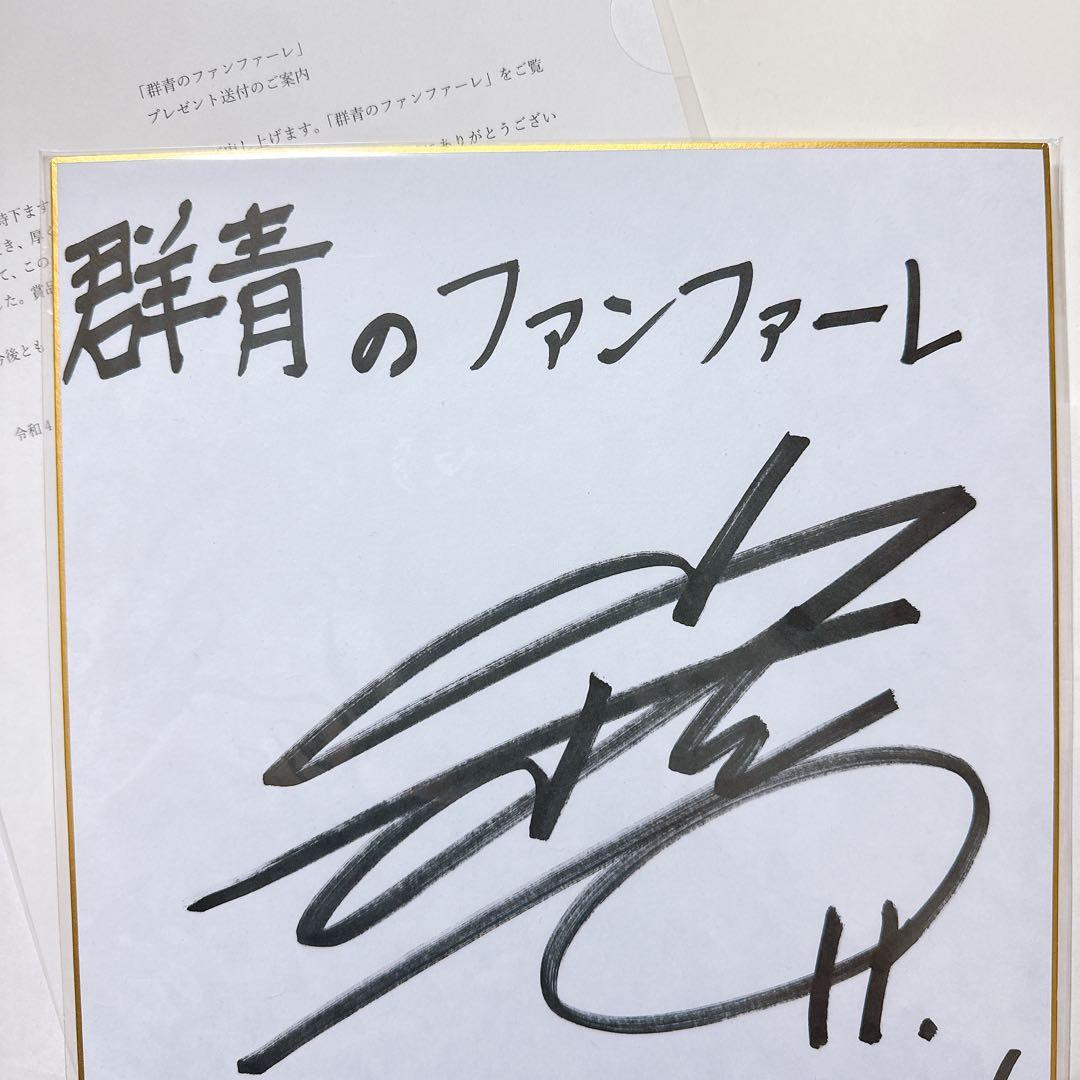 「群青のファンファーレ」
プレゼント送付のご案内
し上げます。「群青のファンファーレ」をご覧
ありがとうござい
時下ます
き、厚く
て、この
した。賞品
今後とも
令和4
群青のファンファーレ
H.